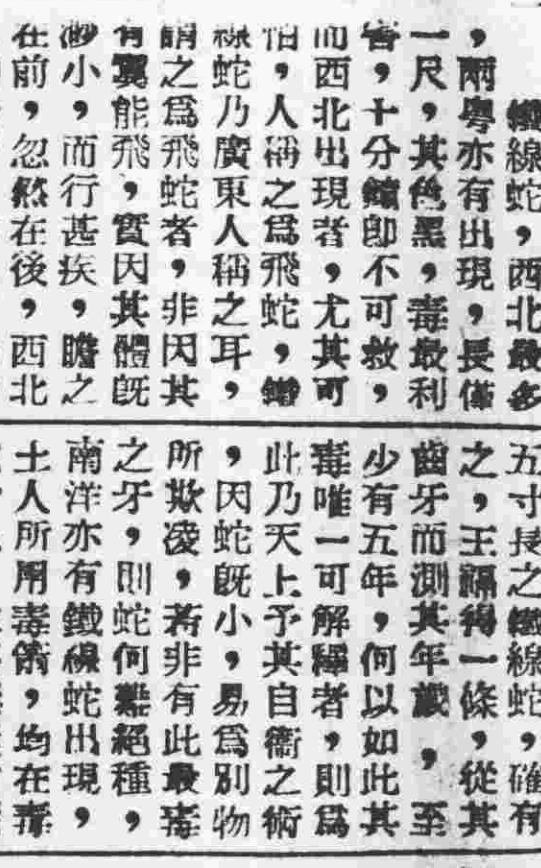 鐵線蛇，西北最多
，兩粵亦有出現，長僅
一尺，其色黑，毒最利
害，十分鐘即不可救，
而西北出現者，尤其可
怕，人稱之爲飛蛇，鐵
線蛇乃廣東人稱之耳，
謂之爲飛蛇者，非因其
有翼能飛，實因其體旣
渺小，而行甚疾，瞻之
在前，忽然在後，西北
五寸長之鐵線蛇，確有
之，王福得一條，從其
齒牙而測其年歲，至
少有五年，何以如此其
毒唯一可解釋者，則爲
此乃天上予其自衞之術
，因蛇旣小，易爲別物
所欺凌，若非有此最毒
之牙，則蛇何難絕種，
南洋亦有鐵線蛇出現，
土人所用毒箭，均在毒